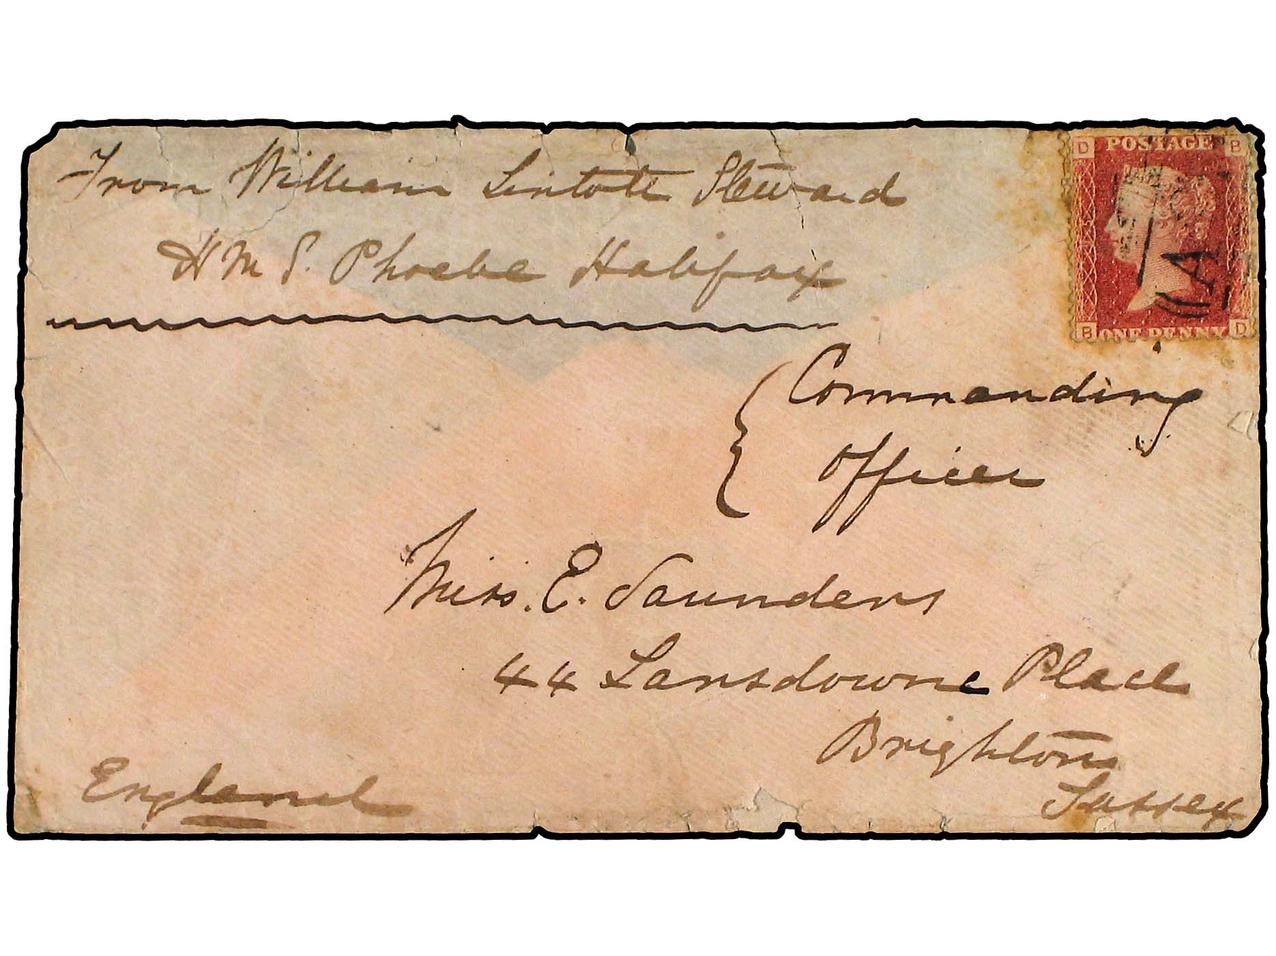 From William Lintott Steward
H M S. Phoebe Halifax
D POSTAGE B
A
B ONE PENNY D
Commanding
Officer
Miss. E. Saunders
44 Lansdowne Place
Brighton
Sussex
England